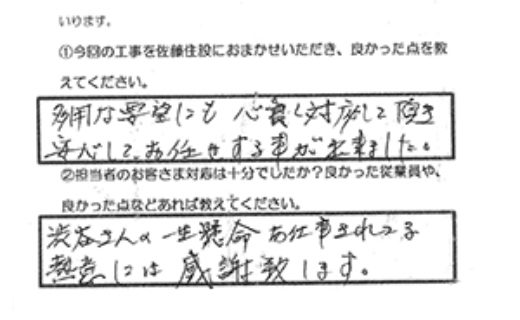 いります。
①今回の工事を佐藤住設におまかせいただき、良かった点を教
えてください。
多用な要望にも心良く対応して頂き
安心してお任せする事が出来ました。
②担当者のお客さま対応は十分でしたか？良かった従業員や、
良かった点などあれば教えてください。
渋谷さんの一生懸命お仕事されてる
熱意には感謝致します。